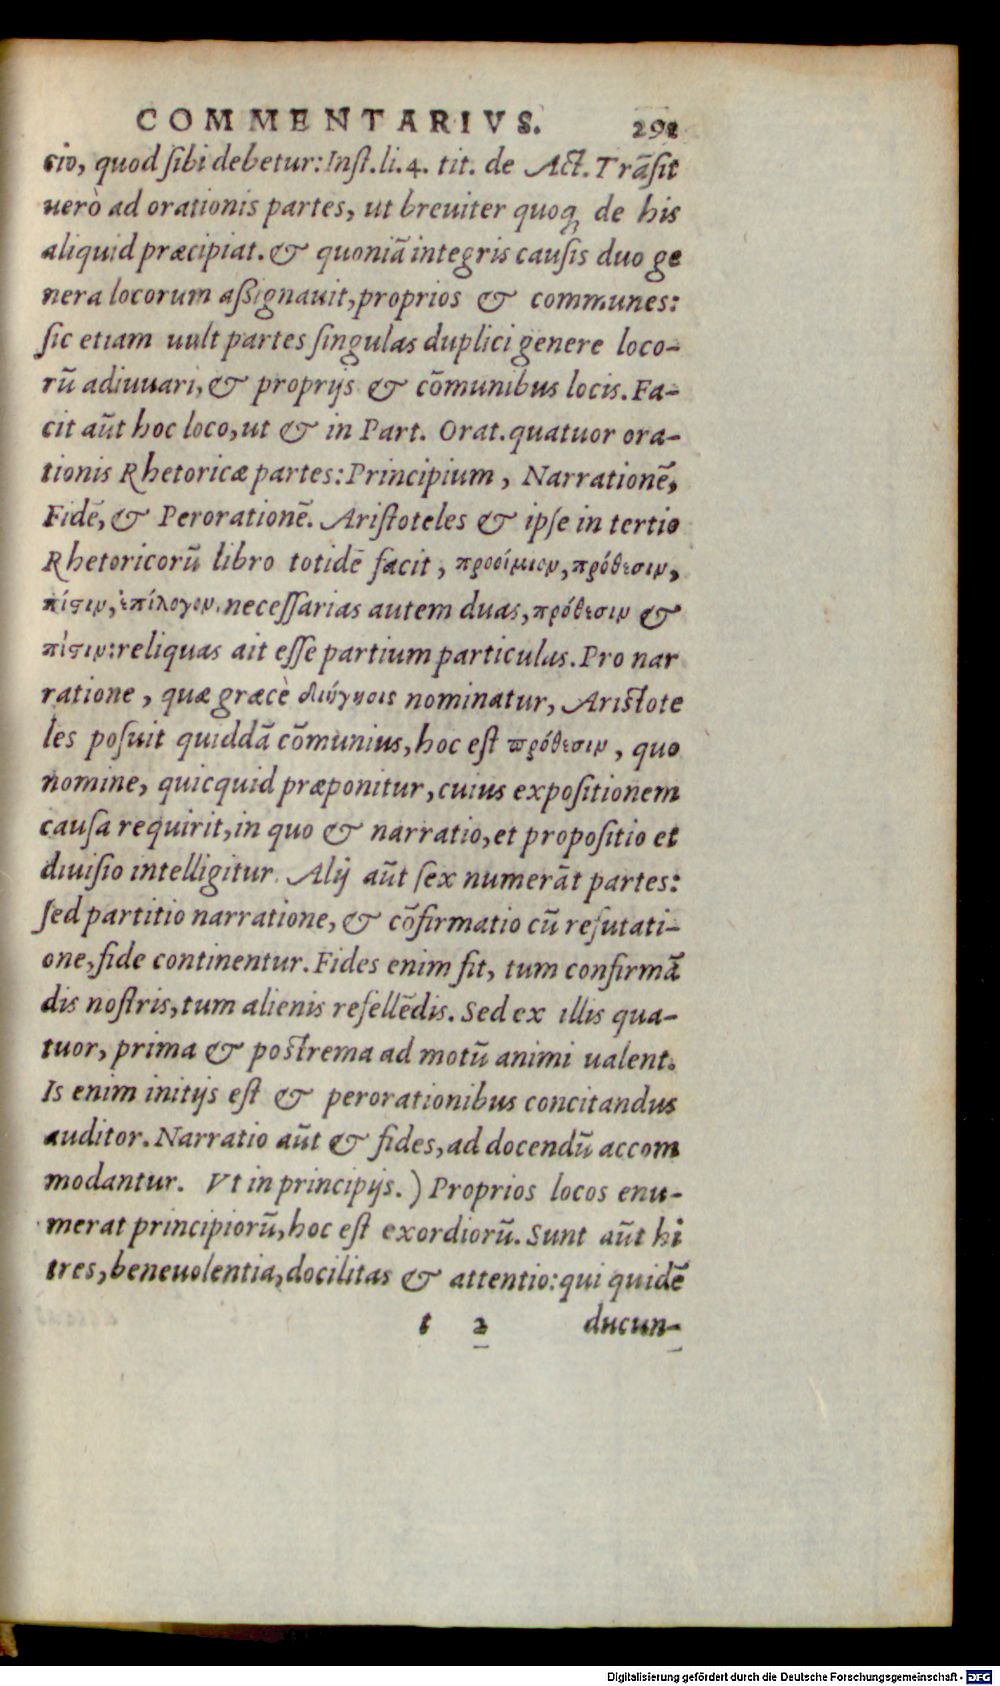 COMMENTARIVS. 291
cio, quod sibi debetur: Inst. li. 4. tit. de Act. Trãsit
uerò ad orationis partes, ut breuiter quoq; de his
aliquid præcipiat. & quoniã integris causis duo ge
nera locorum assignauit, proprios & communes:
sic etiam uult partes singulas duplici genere loco-
rũ adiuuari, & proprijs & cõmunibus locis. Fa-
cit aũt hoc loco, ut & in Part. Orat. quatuor ora-
tionis Rhetoricæ partes: Principium, Narrationẽ,
Fidẽ, & Perorationẽ. Aristoteles & ipse in tertio
Rhetoricorũ libro totidẽ facit, προοίμιον, πρόθεσιν,
πίστιν, ἐπίλογον. necessarias autem duas, πρόθεσιν &
πίστιν: reliquas ait esse partium particulas. Pro nar
ratione, quæ græcè διήγησις nominatur, Aristote
les posuit quiddã cõmunius, hoc est πρόθεσιν, quo
nomine, quicquid præponitur, cuius expositionem
causa requirit, in quo & narratio, et propositio et
diuisio intelligitur. Alij aũt sex numerãt partes:
sed partitio narratione, & cõfirmatio cũ refutati-
one, fide continentur. Fides enim fit, tum confirmã
dis nostris, tum alienis refellẽdis. Sed ex illis qua-
tuor, prima & postrema ad motũ animi ualent.
Is enim initijs est & perorationibus concitandus
auditor. Narratio aũt & fides, ad docendũ accom
modantur. Vt in principijs. ) Proprios locos enu-
merat principiorũ, hoc est exordiorũ. Sunt aũt hi
tres, beneuolentia, docilitas & attentio: qui quidẽ
t 2 ducun-
Digitalisierung gefördert durch die Deutsche Forschungsgemeinschaft - DFG